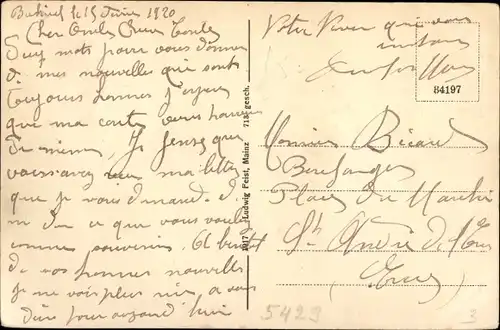 le 15 Juin 1920
Cher Oncle Chere Tante
mots pour vous donner
de mes nouvelles qui sont
toujours bonnes j'espere
que ma carte vous
de même, Je pense que
vous avez ma lettre
que je vous demande
ce que vous voulez
comme souvenirs. A bientôt
de vos bonnes nouvelles
Je ne vois plus rien a vous
dire pour aujourd'hui
Votre Neveu qui vous
embrasse
84197
1917 Ludwig Feist, Mainz 713 gesch.
Monsieur Bicard
Boulanger
Place du Marche
St André de l'Eure
(Eure)
5423
3